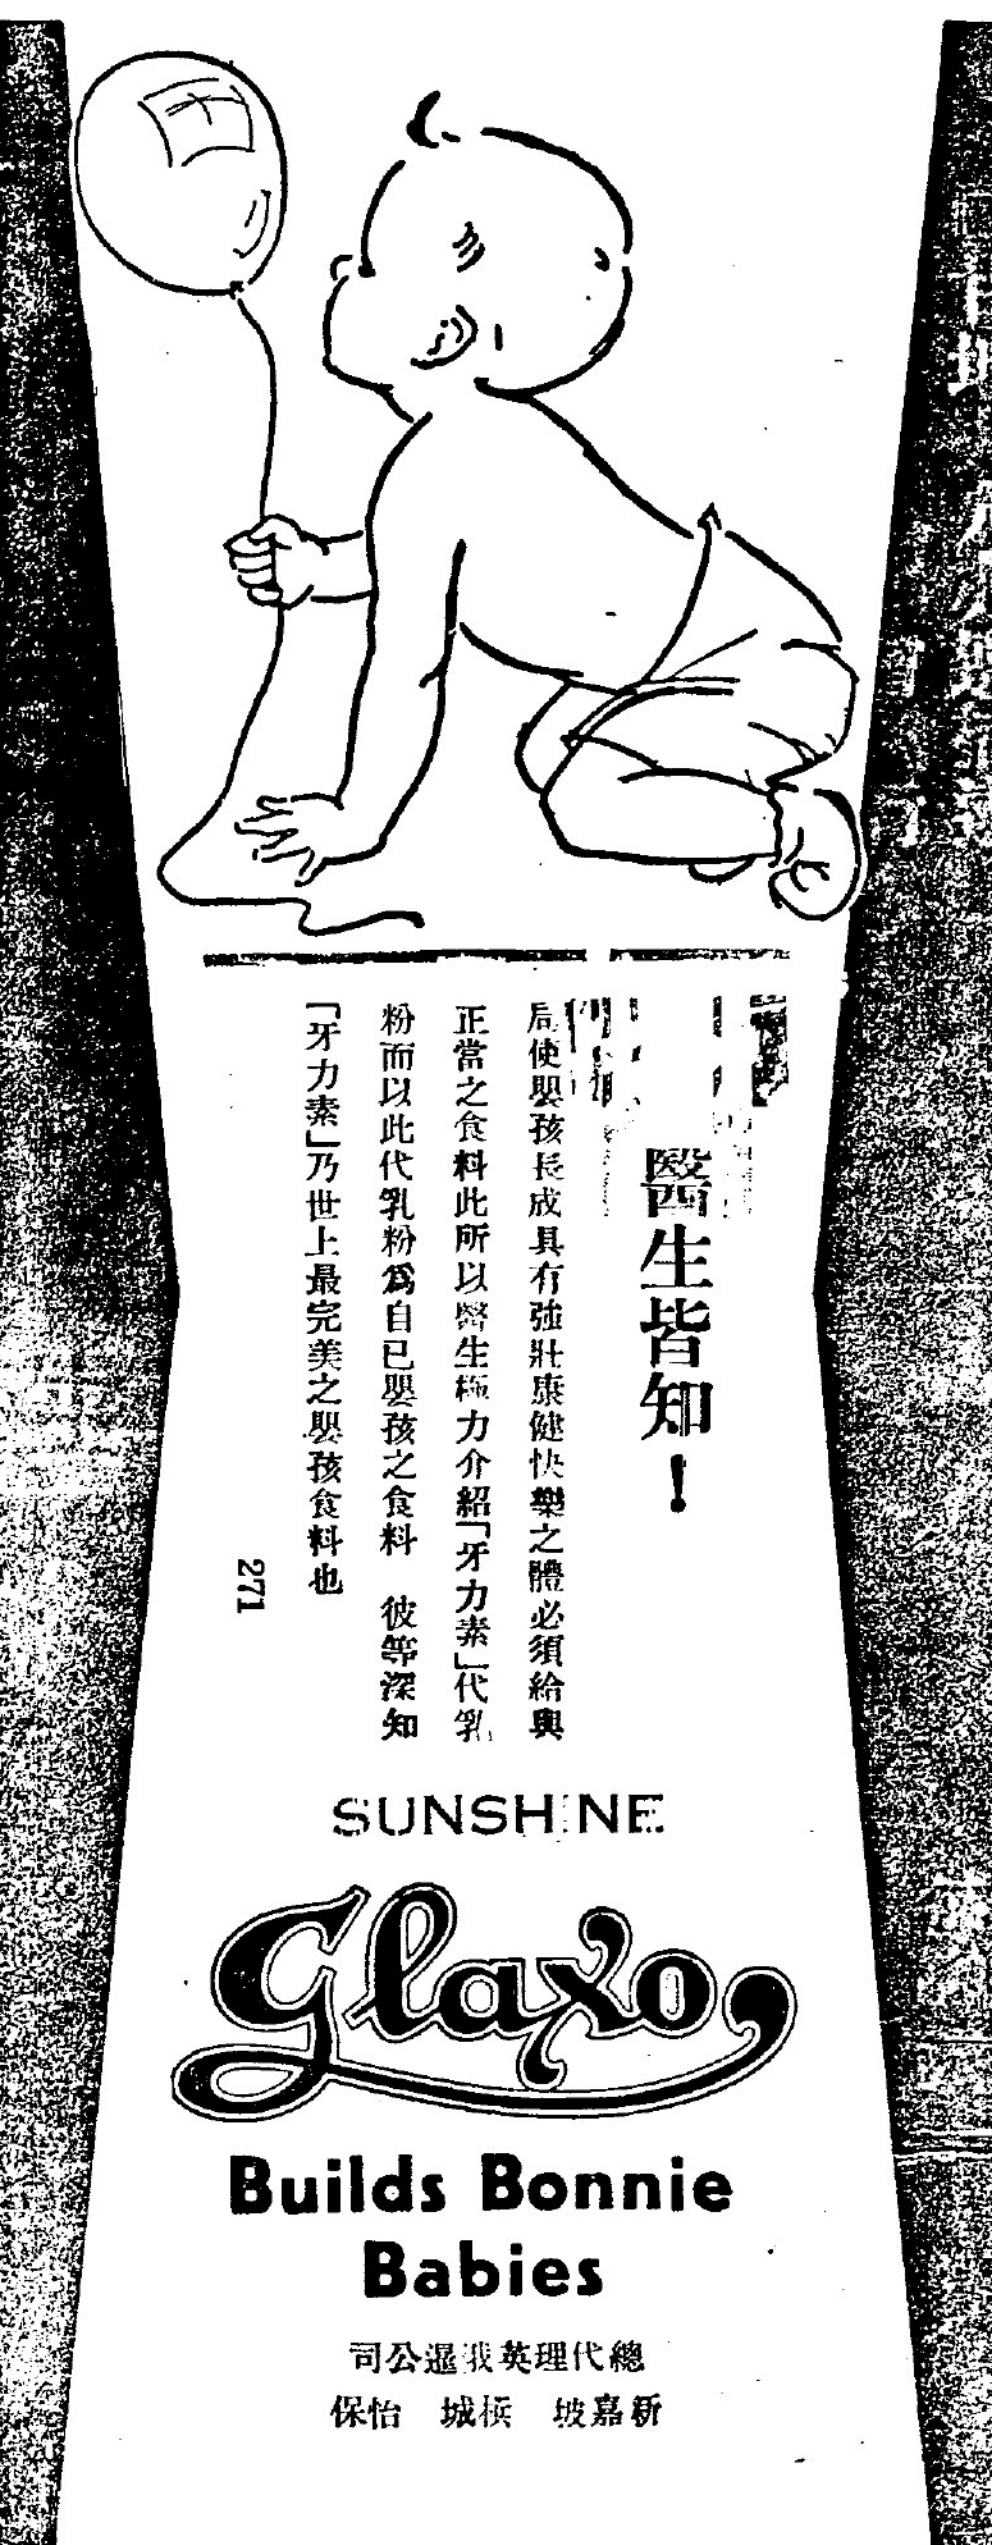 醫生皆知!
局使嬰孩長成具有強壯康健快樂之體必須給與
正當之食料此所以醫生極力介紹「牙力素」代乳
粉而以此代乳粉爲自已嬰孩之食料 彼等深知
「牙力素」乃世上最完美之嬰孩食料也
271
SUNSHINE
Glaxo
Builds Bonnie
Babies
總代理英 公司
新嘉坡 檳城 怡保